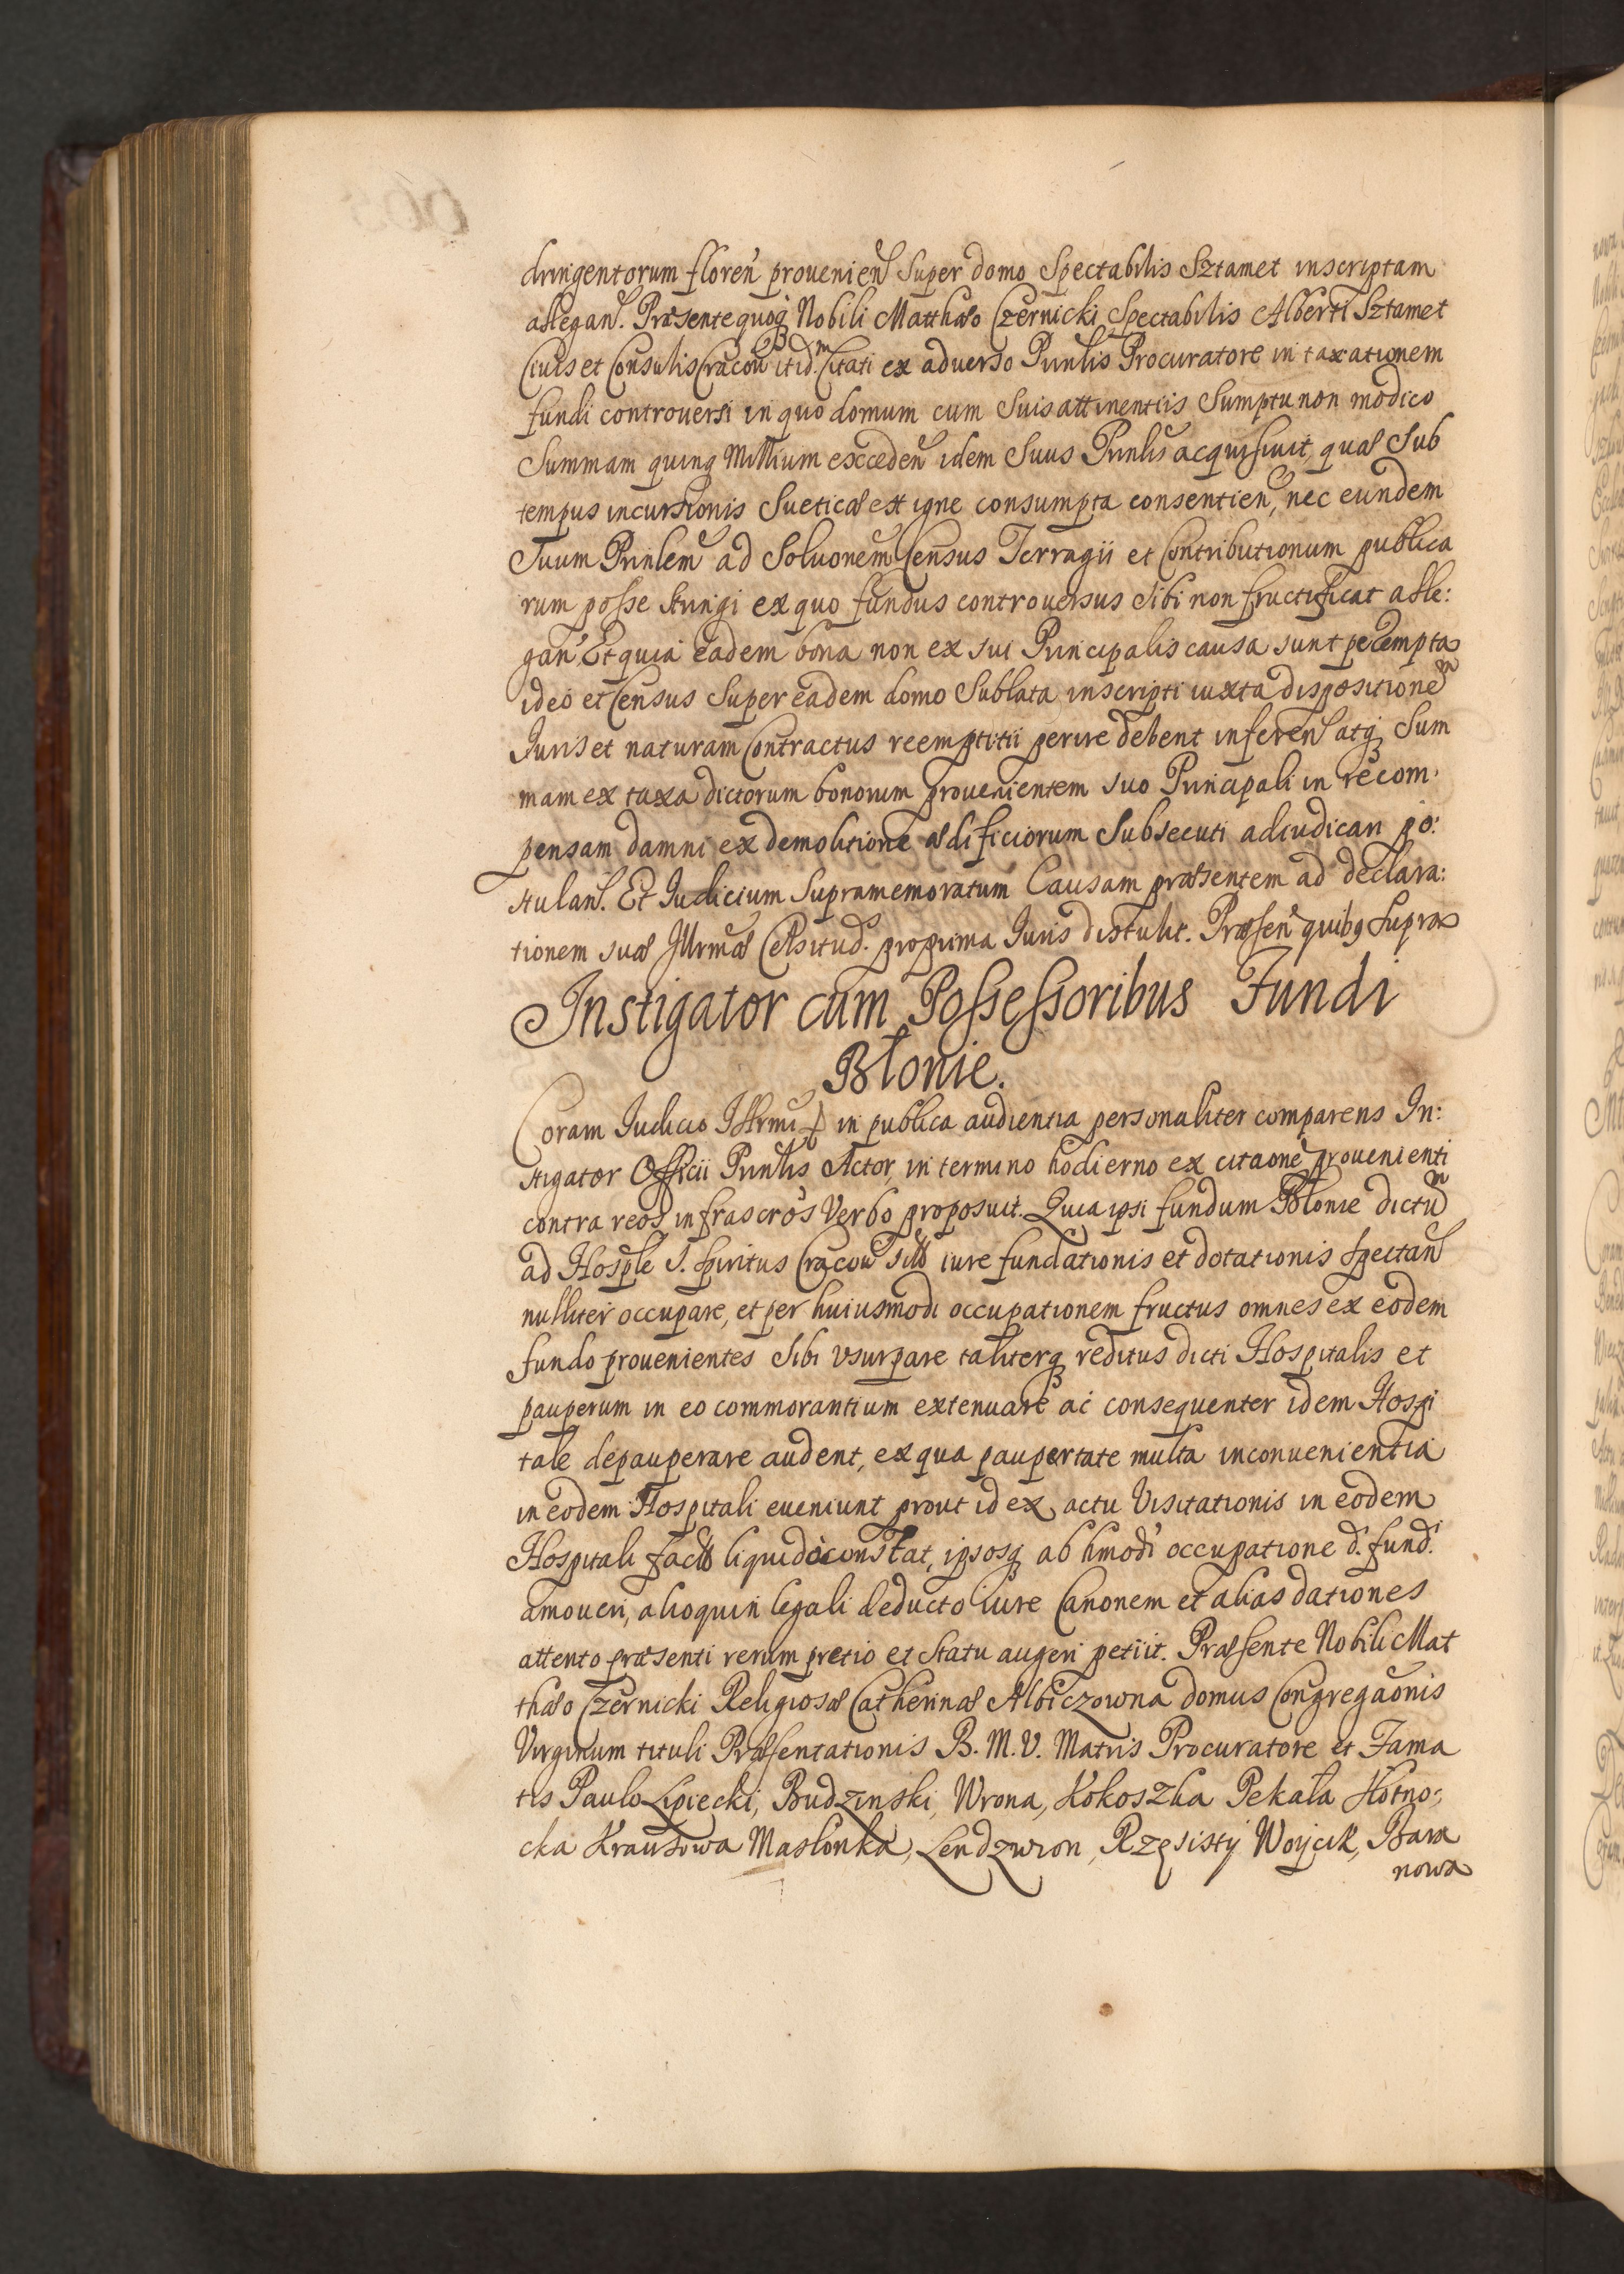 dringentorum floreń prouenień Super domo Spectabilis Sztamet inscriptam
allegań. Præsente quoq Nobili Matthæo Czernicki Spectabilis Alberti Sztamet
Ciuis et Consulis Cracou itid.m Citati ex aduerso Prinlis Procuratore in taxationem
fundi controuersi in quo domum cum Suis attinentiis Sumptu non modico
Summam quinq Millium excedeń idem Suus Prinlis acquisiuit, quæ Sub
tempus incursionis Sueticæ est igne consumpta consentień, nec eundem
Suum Prinlem ad Soluonem Census Terragii et Contributionum publica
rum posse stringi ex quo fundus controuersus Sibi non fructificat alle:
gań Et quia eadem bona non ex sui Principalis causa sunt perempta
ideo et Census Super eadem domo Sublata inscripti iuxta dispositionem
Iuris et naturam Contractus reemptitii perire debent infereń atq Sum
mam ex taxa dictorum bonorum prouenientem suo Principali in recom:
pensam damni ex demolitione ædificiorum Subsecuti adiudicari po:
stulań. Et Iudicium Supramemoratum Causam præsentem ad declara:
tionem suæ Illrmæ Celsitud. proxima Iuris distulit. Præseń quibq Supra
Instigator cum Possessoribus Fundi
Błonie.
Coram Iudicio Illrmi in publica audientia personaliter comparens In:
stigator Officii Prinlis Actor, in termino hodierno ex citaone prouenienti
contra reos infrascros Verbo proposuit. Quia ipsi fundum Błonie dictum
ad Hosple S. Spiritus Cracou iure fundationis et dotationis Spectań
nulliter occupare, et per huiusmodi occupationem fructus omnes ex eodem
fundo prouenientes Sibi vsurpare taliterq reditus dicti Hospitalis et
pauperum in eo commorantium extenuare ac consequenter idem Hospi
tale depauperare audent, ex qua paupertate multa inconuenientia
in eodem Hospitali eueniunt prout id ex actu Visitationis in eodem
Hospitali facto liquido constat, ipsosq ab hmodi occupatione d. fund.
amoueri, alioquin legali deducto iure Canonem et alias dationes
attento præsenti rerum pretio et Statu augeri petiit. Præsente Nobili Mat
thæo Czernicki Religiosæ Catherinæ Albiczowna domus Congregaonis
Virginum tituli Præsentationis B. M. V. Matris Procuratore et Fama
tis Paulo Lipiecki, Budzinski, Wrona, Kokoszka Pekała
cka Krausowa Maslonka, Lendzwion, Rzęsistÿ Woÿcik, Bara
nowa